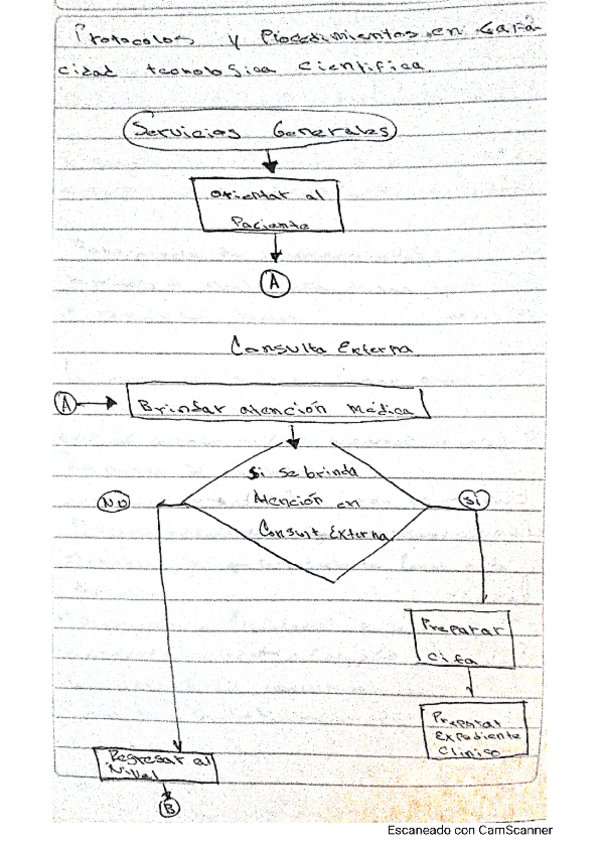 Protocolos y Procedimientos en Capa-
cidad tecnologica cientifica.
Servicios Generales
Orientar al
Paciente
A
Consulta Externa
A
Brindar atención Médica
Si se brinda
Atención en
Consult Externa
NO
Si
Preparar
Cita
Preparar
Expediente
Cliniso
Regresar al
Nivel
B
Escaneado con CamScanner